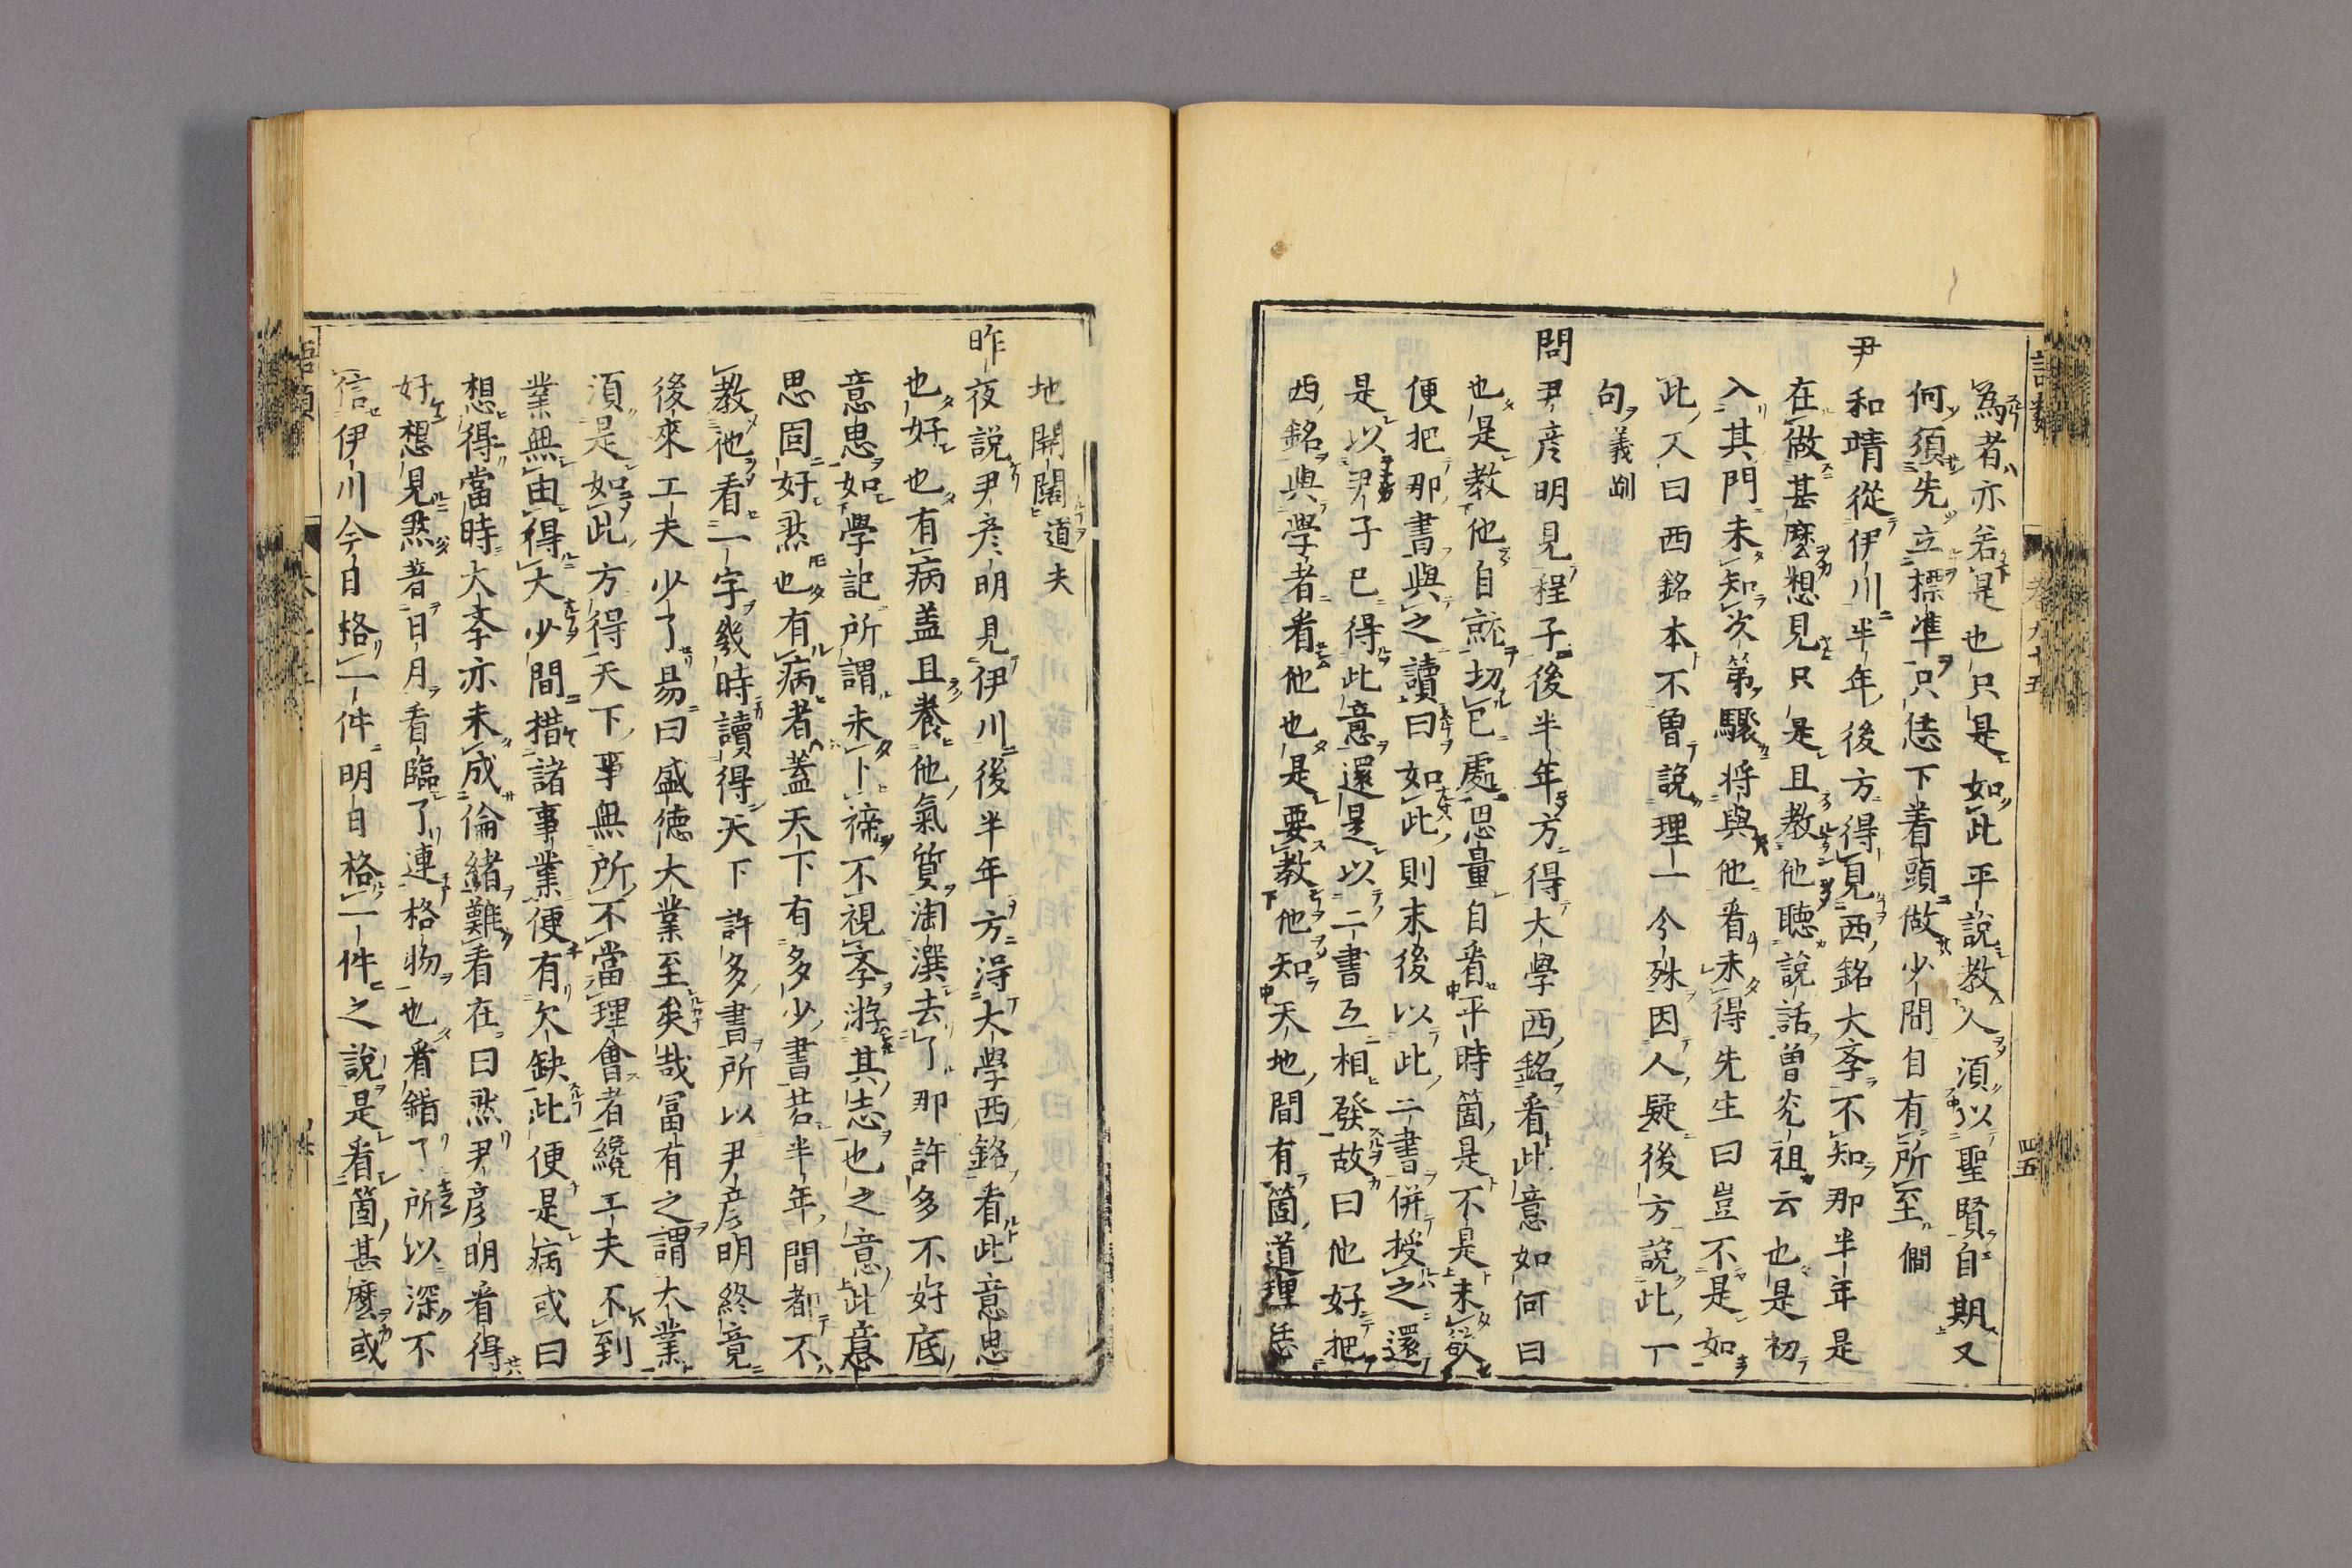 語類 卷九十五 四五
為者亦若是也只是如此平說教人須以聖賢自期又
何須先立標準只恁下着頭做少間自有所至僩
尹和靖從伊川半年後方得見西銘大斈不知那半年是
在做甚麼想見只是且教他聽說話曾光祖云也是初
入其門未知次第驟將與他看未得先生曰豈不是如
此又曰西銘本不曾說理一今殊因人疑後方說此一
句義剛
問尹彦明見程子後半年方得大學西銘看此意如何曰
也是教他自就切已處思量自看平時箇是不是未欲
便把那書與之讀曰如此則末後以此二書併授之還
是以尹子已得此意還是以二書互相發故曰他好把
西銘與學者看他也是要教他知天地間有箇道理恁
地開闊道夫
昨夜說尹彦明見伊川後半年方得大學西銘看此意思
也好也有病盖且養他氣質淘潠去了那許多不好底
意思如學記所謂未卜禘不視斈游其志也之意此意
思固好然也有病者蓋天下有多少書若半年間都不
教他看一字幾時讀得天下許多書所以尹彦明終竟
後來工夫少了易曰盛德大業至矣哉冨有之謂大業
須是如此方得天下事無所不當理會者纔工夫不到
業無由得大少間措諸事業便有欠缺此便是病或曰
想得當時大斈亦未成倫緒難看在曰然尹彦明看得
好想見然著日月看臨了連格物也看錯了所以深不
信伊川今日格一件明日格一件之說是看箇甚麼或